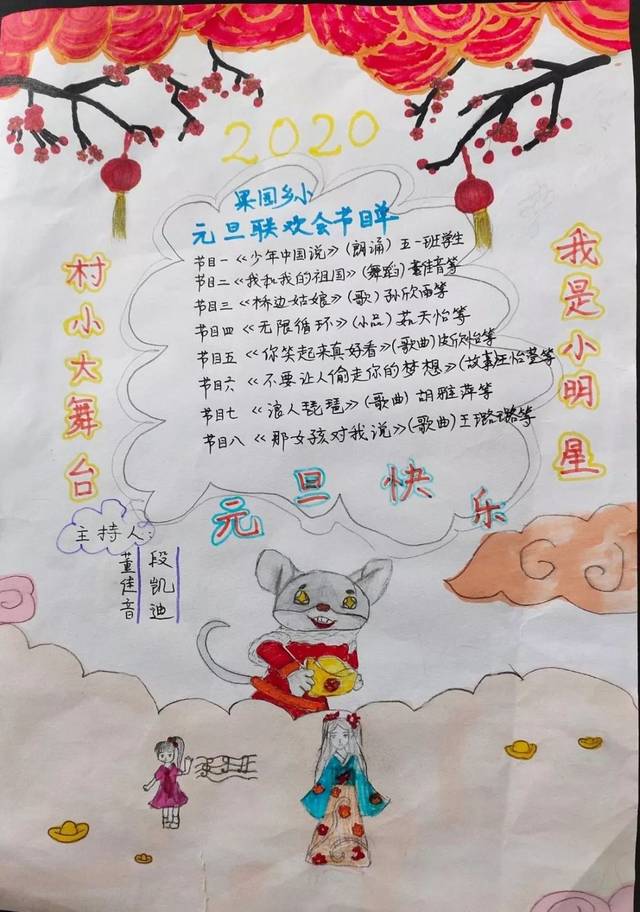 2020
果园乡小
元旦联欢会节目单
节目一《少年中国说》(朗诵) 五一班学生
节目二《我和我的祖国》(舞蹈) 董佳音等
节目三《桥边姑娘》(歌) 孙欣雨等
节目四《无限循环》(小品) 茹天怡等
节目五《你笑起来真好看》(歌曲) 欣怡等
节目六《不要让人偷走你的梦想》(故事) 王怡萱等
节目七《浪人琵琶》(歌曲) 胡雅萍等
节目八《那女孩对我说》(歌曲) 王璐璐等
村小大舞台
我是小明星
元旦快乐
主持人:
段凯迪
董佳音